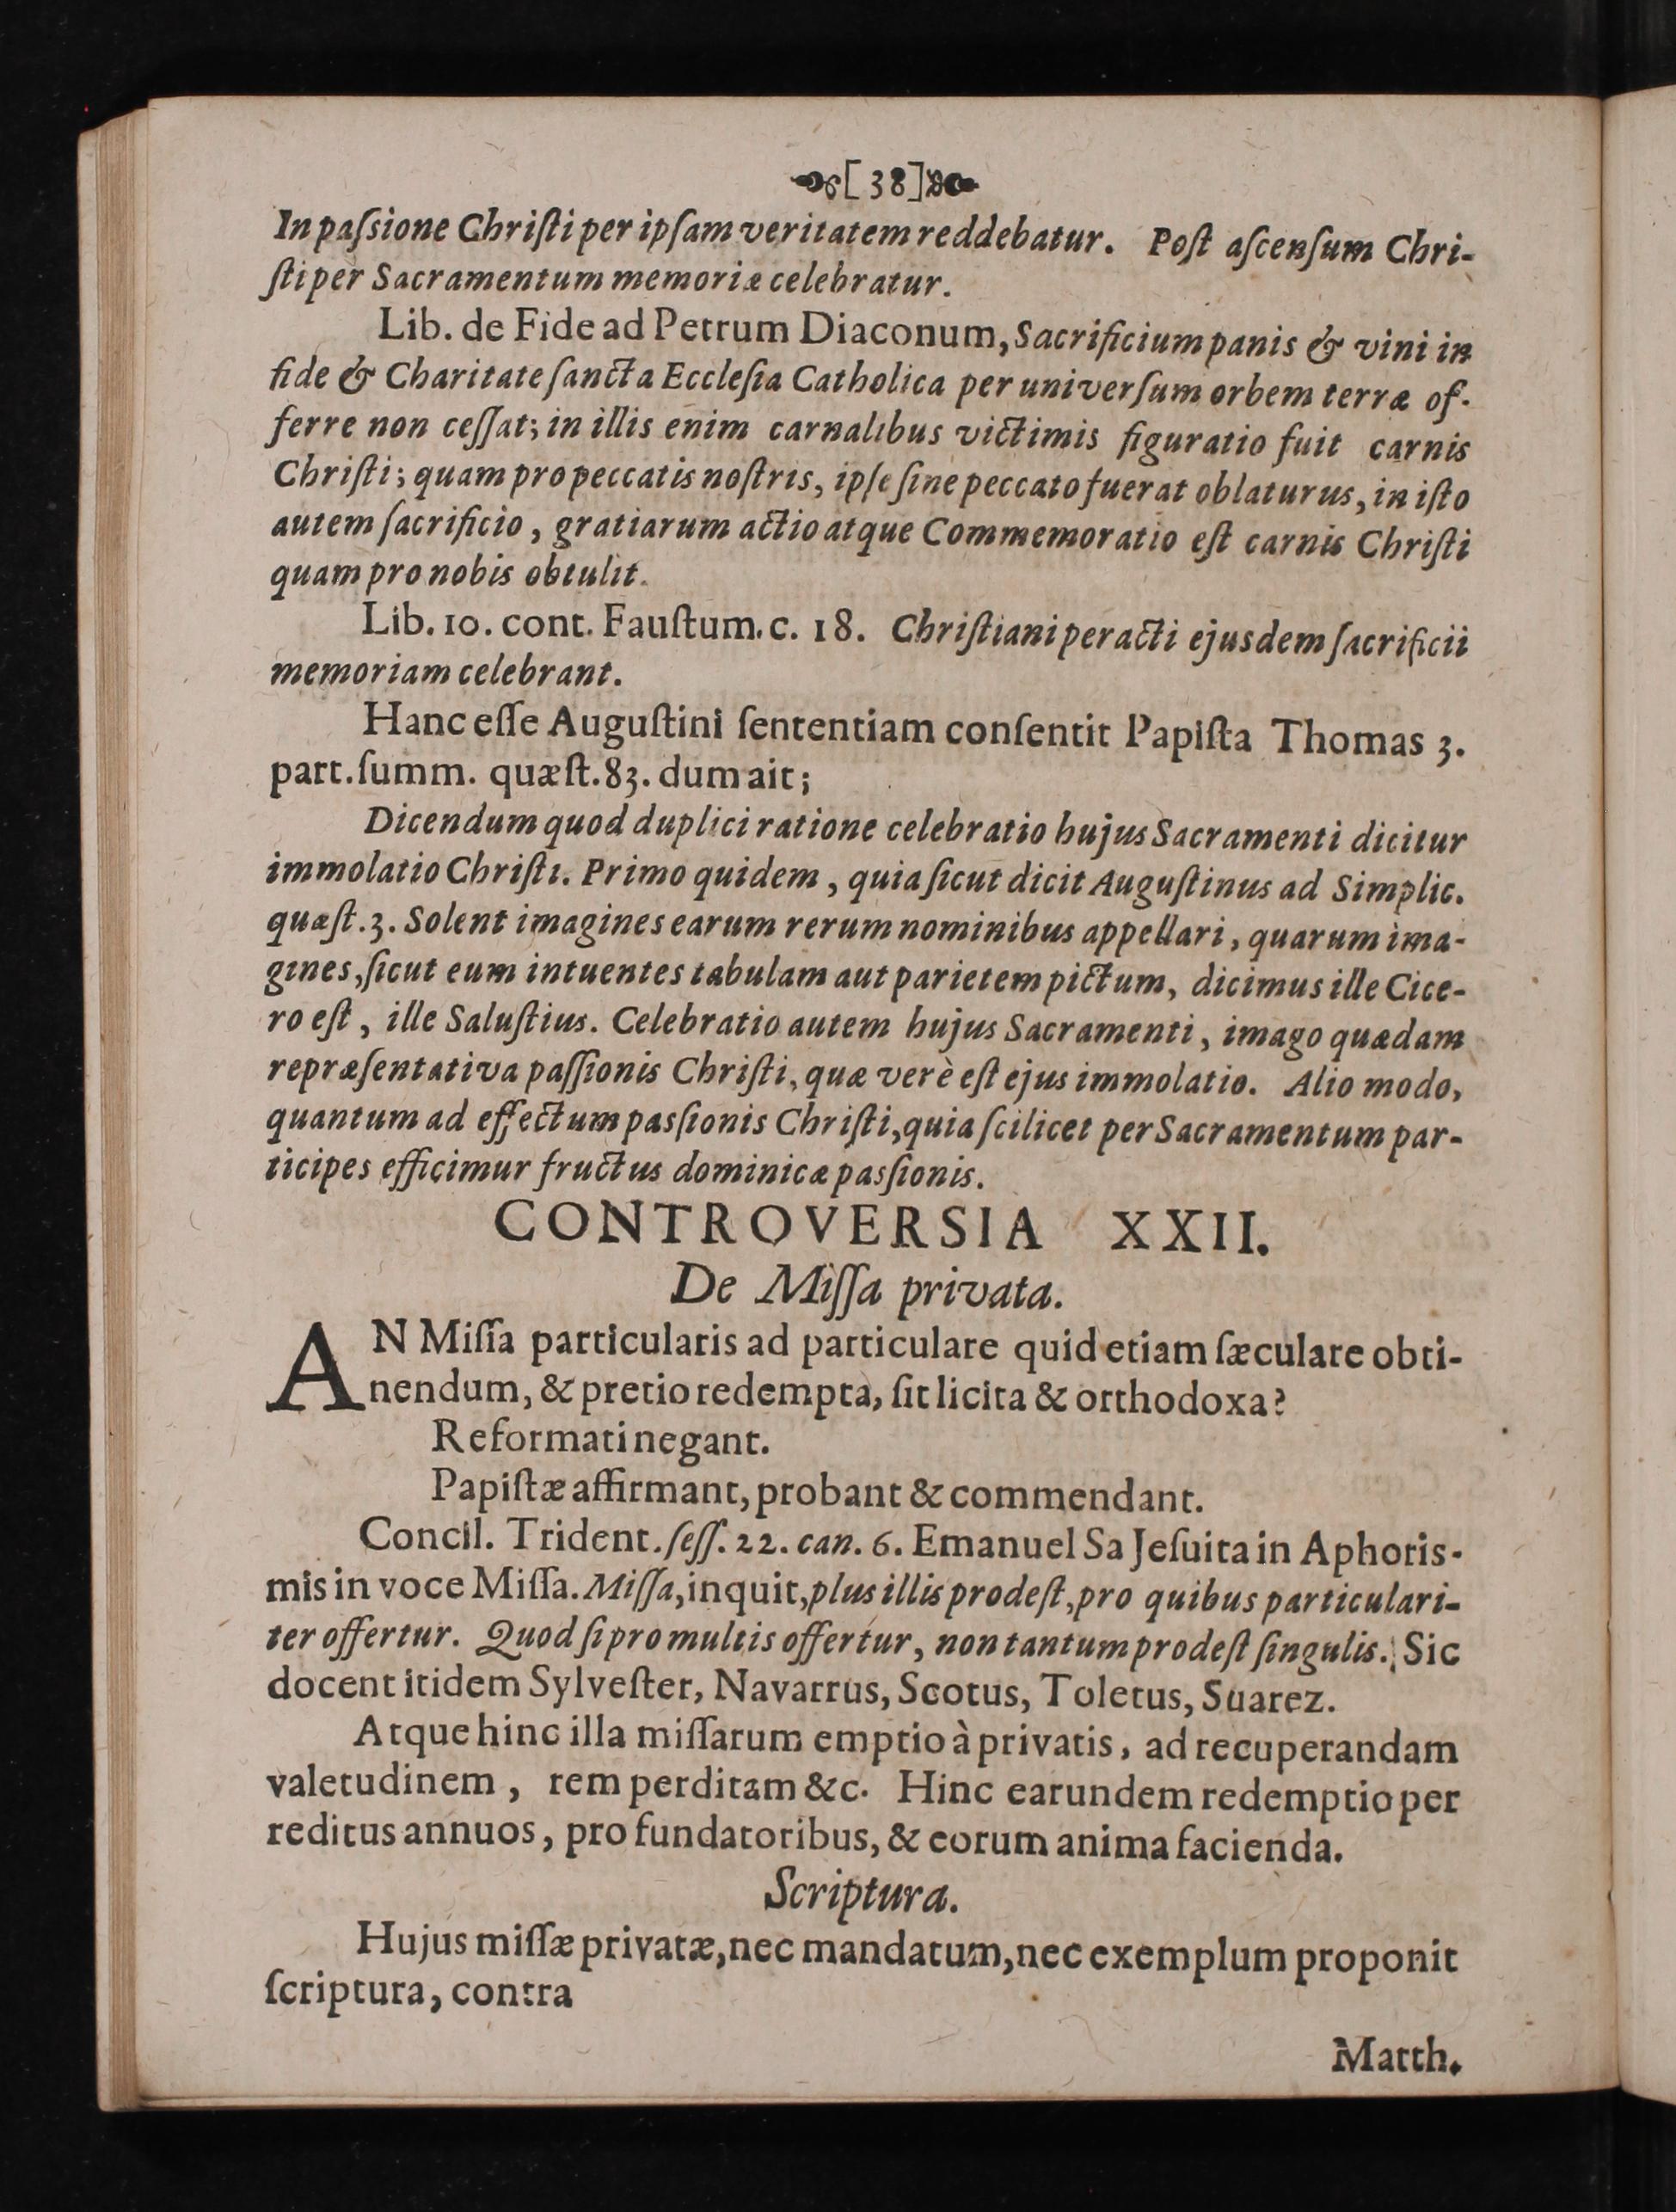 [38]
In paſsione Chriſti per ipſam veritatem reddebatur. Poſt aſcenſum Chri-
ſti per Sacramentum memoriæ celebratur.
Lib. de Fide ad Petrum Diaconum, Sacrificium panis & vini in
fide & Charitate ſancta Eccleſia Catholica per univerſum orbem terræ of-
ferre non ceſſat; in illis enim carnalibus victimis figuratio fuit carnis
Chriſti; quam pro peccatis noſtris, ipſe ſine peccato fuerat oblaturus, in iſto
autem ſacrificio, gratiarum actio atque Commemoratio eſt carnis Chriſti
quam pro nobis obtulit.
Lib. 10. cont. Fauſtum. c. 18. Chriſtiani peracti ejusdem ſacrificii
memoriam celebrant.
Hanc eſſe Auguſtini ſententiam conſentit Papiſta Thomas 3.
part. ſumm. quæſt. 83. dum ait;
Dicendum quod duplici ratione celebratio hujus Sacramenti dicitur
immolatio Chriſti. Primo quidem, quia ſicut dicit Auguſtinus ad Simplic.
quæſt. 3. Solent imagines earum rerum nominibus appellari, quarum ima-
gines, ſicut eum intuentes tabulam aut parietem pictum, dicimus ille Cice-
ro eſt, ille Saluſtius. Celebratio autem hujus Sacramenti, imago quædam
repræſentativa paſſionis Chriſti, quæ verè eſt ejus immolatio. Alio modo,
quantum ad effectum pasſionis Chriſti, quia ſcilicet per Sacramentum par-
ticipes efficimur fructus dominicæ pasſionis.
CONTROVERSIA XXII.
De Miſſa privata.
AN Miſſa particularis ad particulare quid etiam ſæculare obti-
nendum, & pretio redempta, ſit licita & orthodoxa?
Reformati negant.
Papiſtæ affirmant, probant & commendant.
Concil. Trident. ſeſſ. 22. can. 6. Emanuel Sa Jeſuita in Aphoris-
mis in voce Miſſa. Miſſa, inquit, plus illis prodeſt, pro quibus particulari-
ter offertur. Quod ſi pro multis offertur, non tantum prodeſt ſingulis. Sic
docent itidem Sylveſter, Navarrus, Scotus, Toletus, Suarez.
Atque hinc illa miſſarum emptio à privatis, ad recuperandam
valetudinem, rem perditam &c. Hinc earundem redemptio per
reditus annuos, pro fundatoribus, & eorum anima facienda.
Scriptura.
Hujus miſſæ privatæ, nec mandatum, nec exemplum proponit
ſcriptura, contra
Matth.